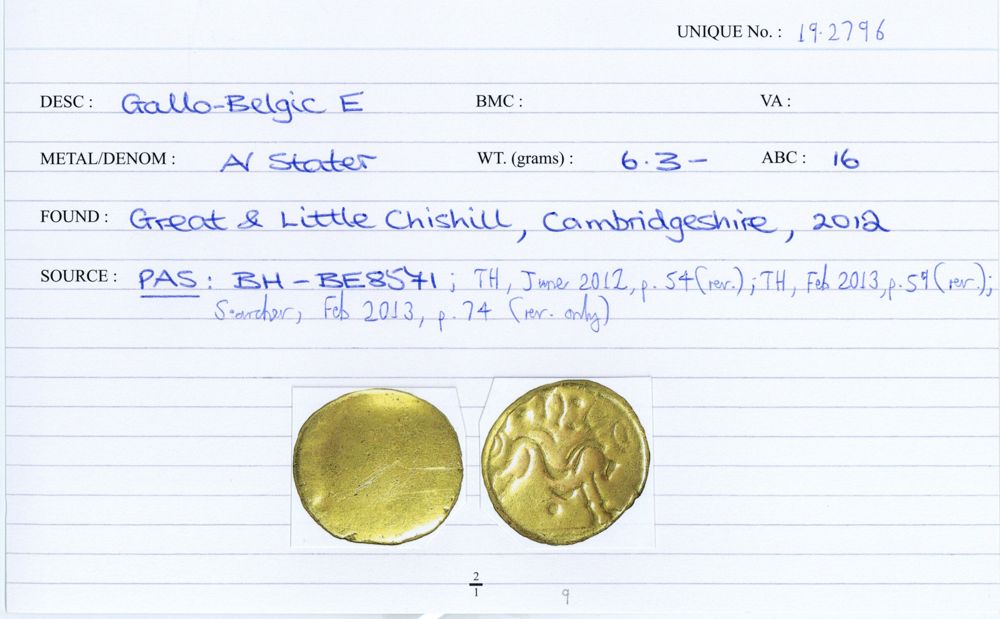 UNIQUE No. : 19.2796
DESC : Gallo-Belgic E BMC : VA :
METAL/DENOM : A/ Stater WT. (grams) : 6.3- ABC : 16
FOUND : Great & Little Chishill, Cambridgeshire, 2012
SOURCE : PAS: BH-BE8571; TH, June 2012, p. 54 (rev.); TH, Feb 2013, p. 59 (rev.);
Searcher, Feb 2013, p. 74 (rev. only)
2
1 9